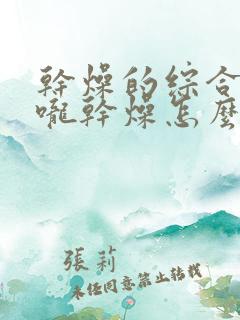 幹燥的綜合
嚨幹燥怎麼
張莉
未經同意禁止轉載